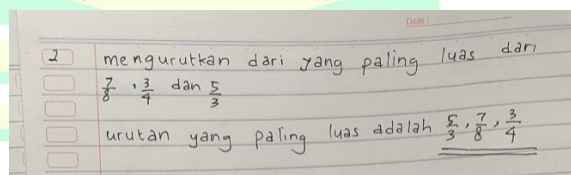 Date :
2 mengurutkan dari yang paling luas dari
7/8, 3/4 dan 5/3
urutan yang paling luas adalah 5/3, 7/8, 3/4